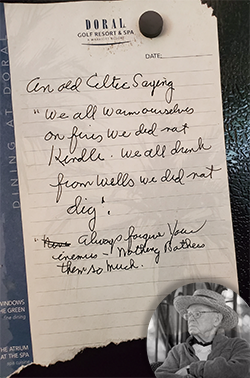 DORAL
GOLF RESORT & SPA
A MARRIOTT RESORT
DATE:
DINING AT DORAL
An old Celtic Saying
"We all warm ourselves
on fires we did not
Kindle. We all drink
from Wells we did not
dig".
" always forgive your
enemies - Nothing Bothers
them so much.
WINDOWS
GREEN
fine dining
THE ATRIUM
AT THE SPA